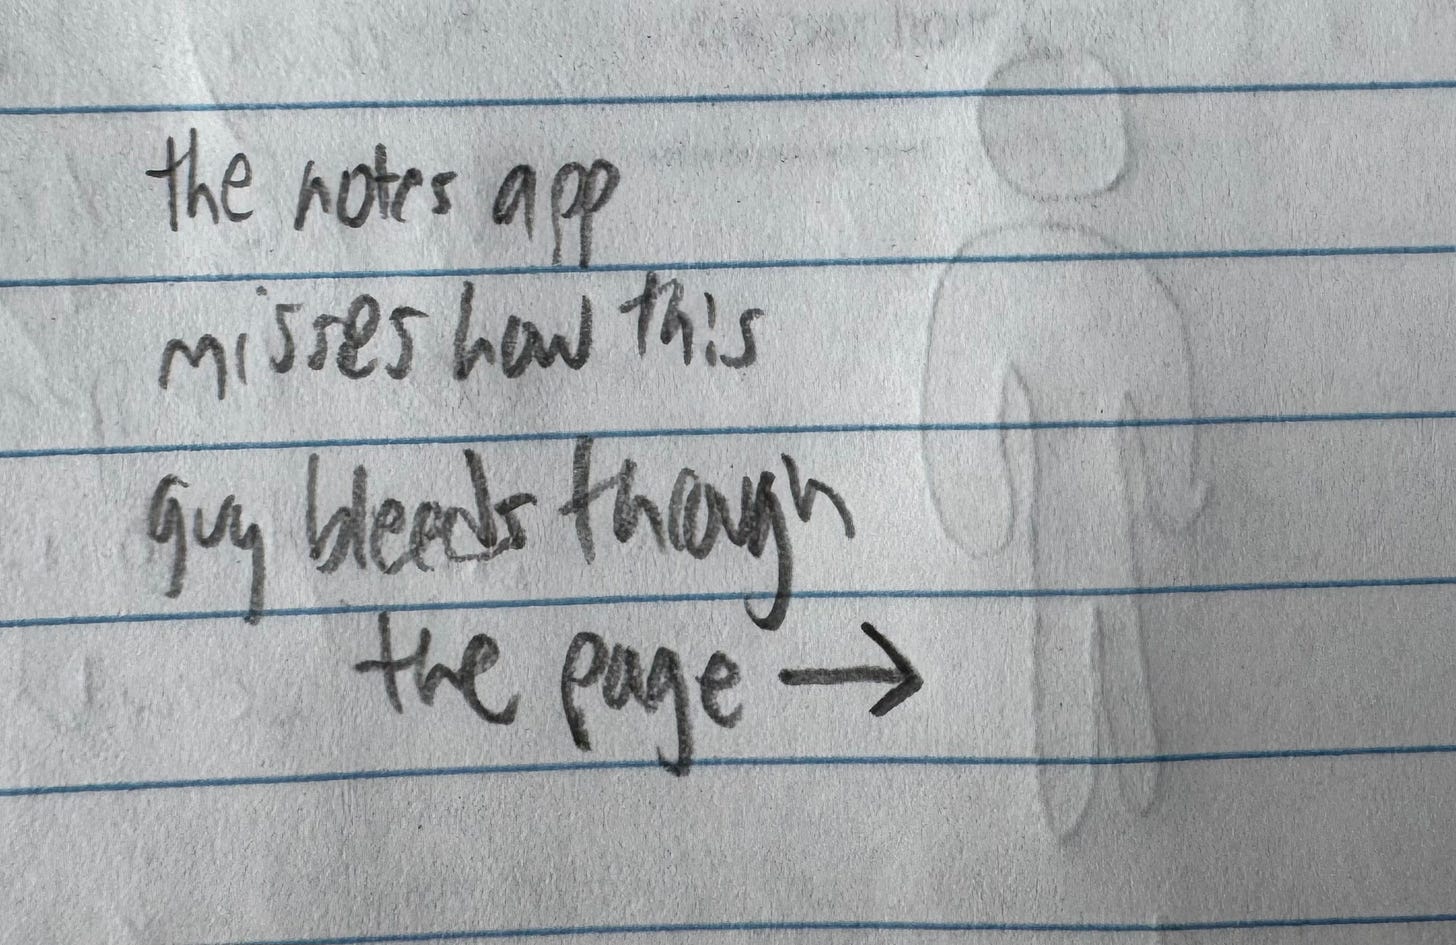 the notes app
misses how this
guy bleeds though
the page →